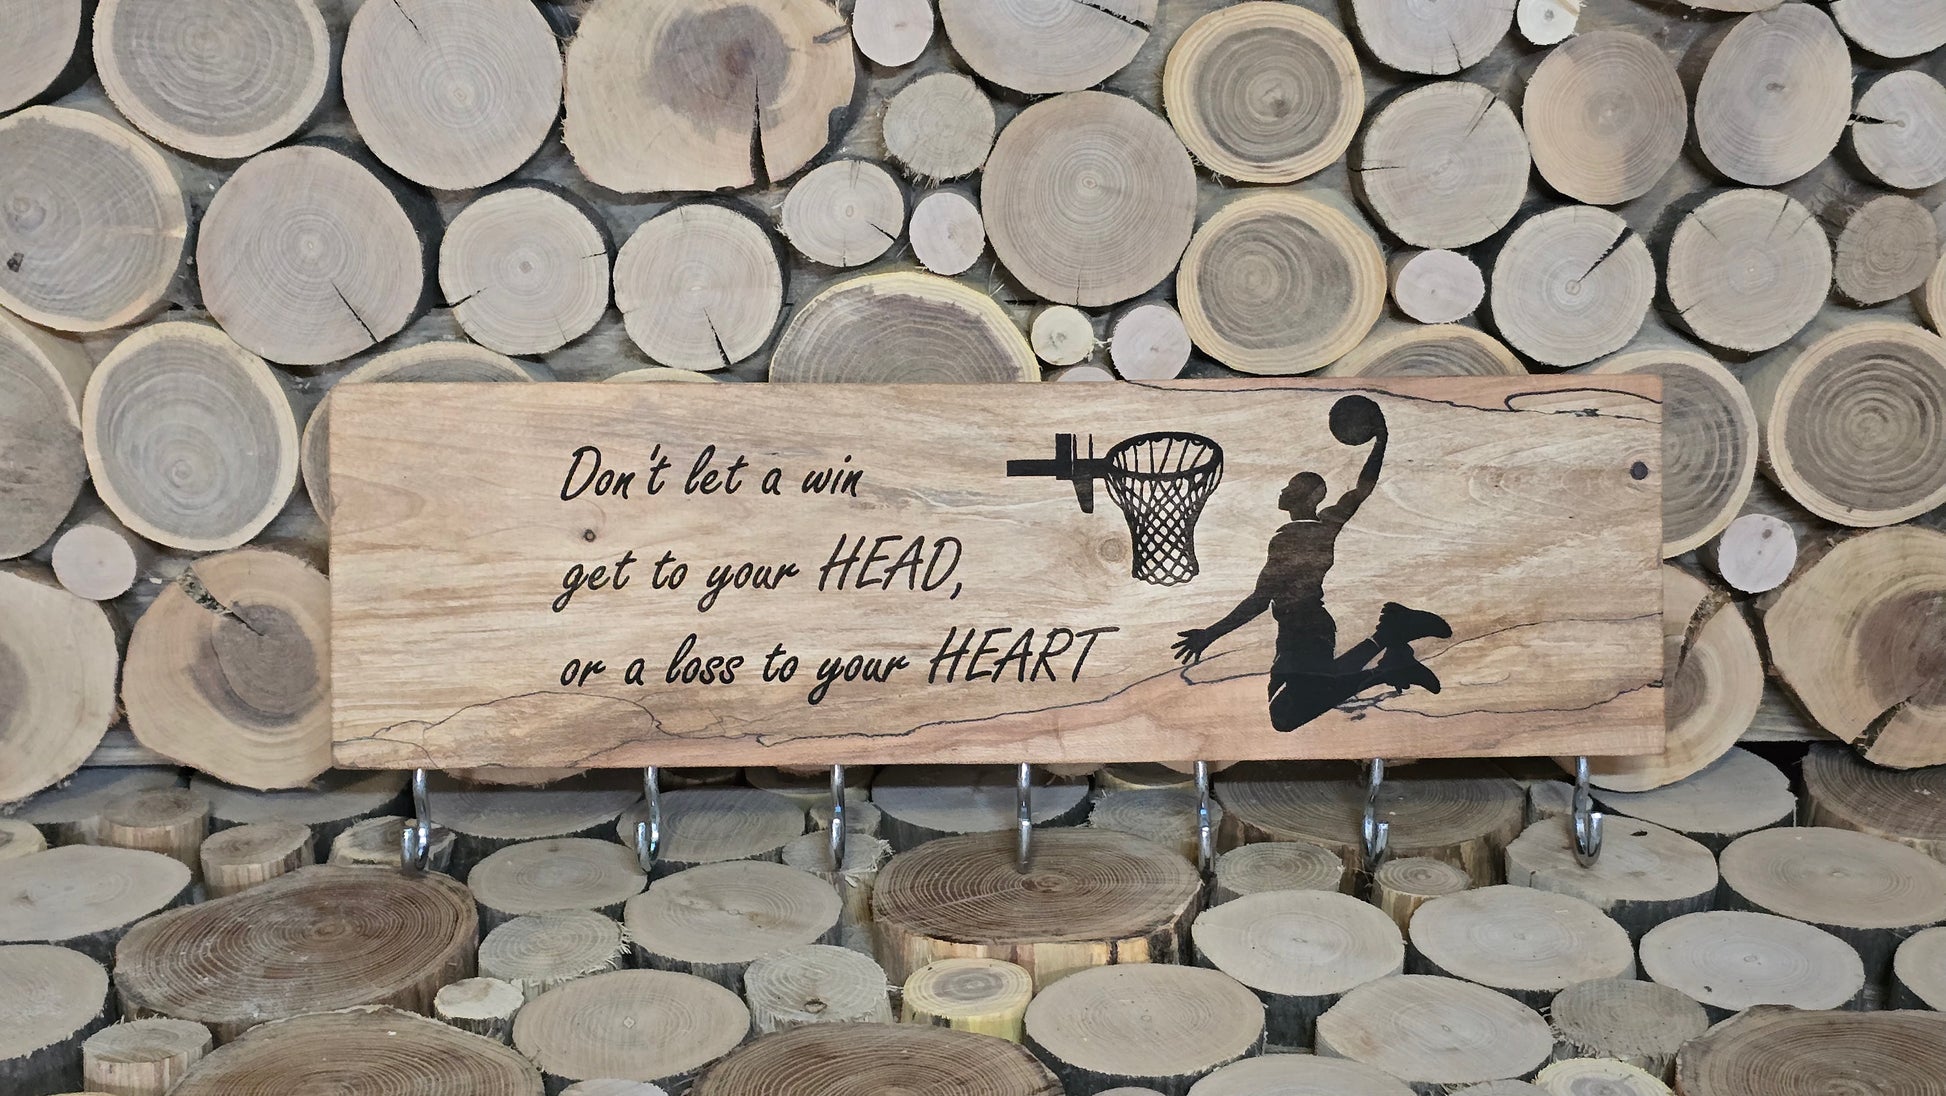 Don't let a win
get to your HEAD,
or a loss to your HEART